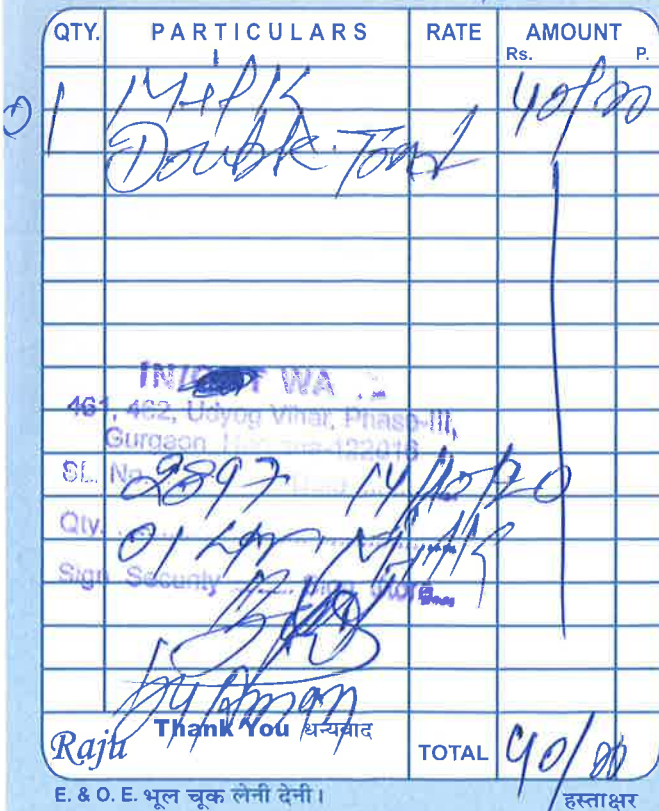 QTY. PARTICULARS RATE AMOUNT
Rs. P.
1 1 Milk 40/00
Double Tond
WA
461, 462, Udyog Vihar, Phase-III,
Gurgaon 122016
SL. No. 2897 14/10/20
Qty. 01 Milk
Sign Security Sign Store
by Aman
Raju Thank You धन्यवाद TOTAL 40/00
E. & O. E. भूल चूक लेनी देनी। हस्ताक्षर